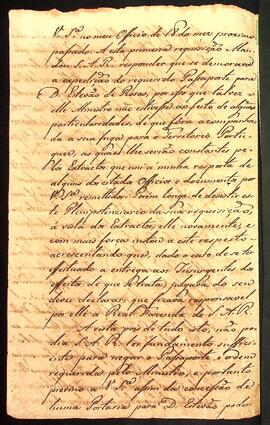 V. Sª. no meu Officio de 18 do mez proximo
passado. A esta primeira requisição Man-
dou S. A. R. responder que se demorava
a expedição do requerido Passaporte para
D. Estevão de Rosas, por isso que talvez
elle Ministro não estivesse ao facto de algũas
particularidades de que fôra acompanha-
da a sua fuga para o Territorio Portu-
guez, as quaes lhe serião constantes pe-
los Extractos que uni a minha resposta de
alguns dos citados Officios e documentos por
V. Sª. remettidos. Porem longe de desistir es-
te Plenipotenciario da sua requisição,
á vista dos Extractos, elle novamente, e
com mais força instou a este respeito
acrescentando que, dado o caso de se ter
effeituado a entrega aos Insurgentes dos
effeitos de que se trata, julgava do seu
dever declarar, que ficava responsavel
por elle a Real Fazenda de S. A. R.
A vista pois de tudo isto, não po-
dia S. A. R. ter fundamento sufficien-
te para negar o Passaporte e ordem
requeridas pelo Ministro, e portanto
previno a V. Sª. assim da concessão de
huma Portaria para D. Estevão poder